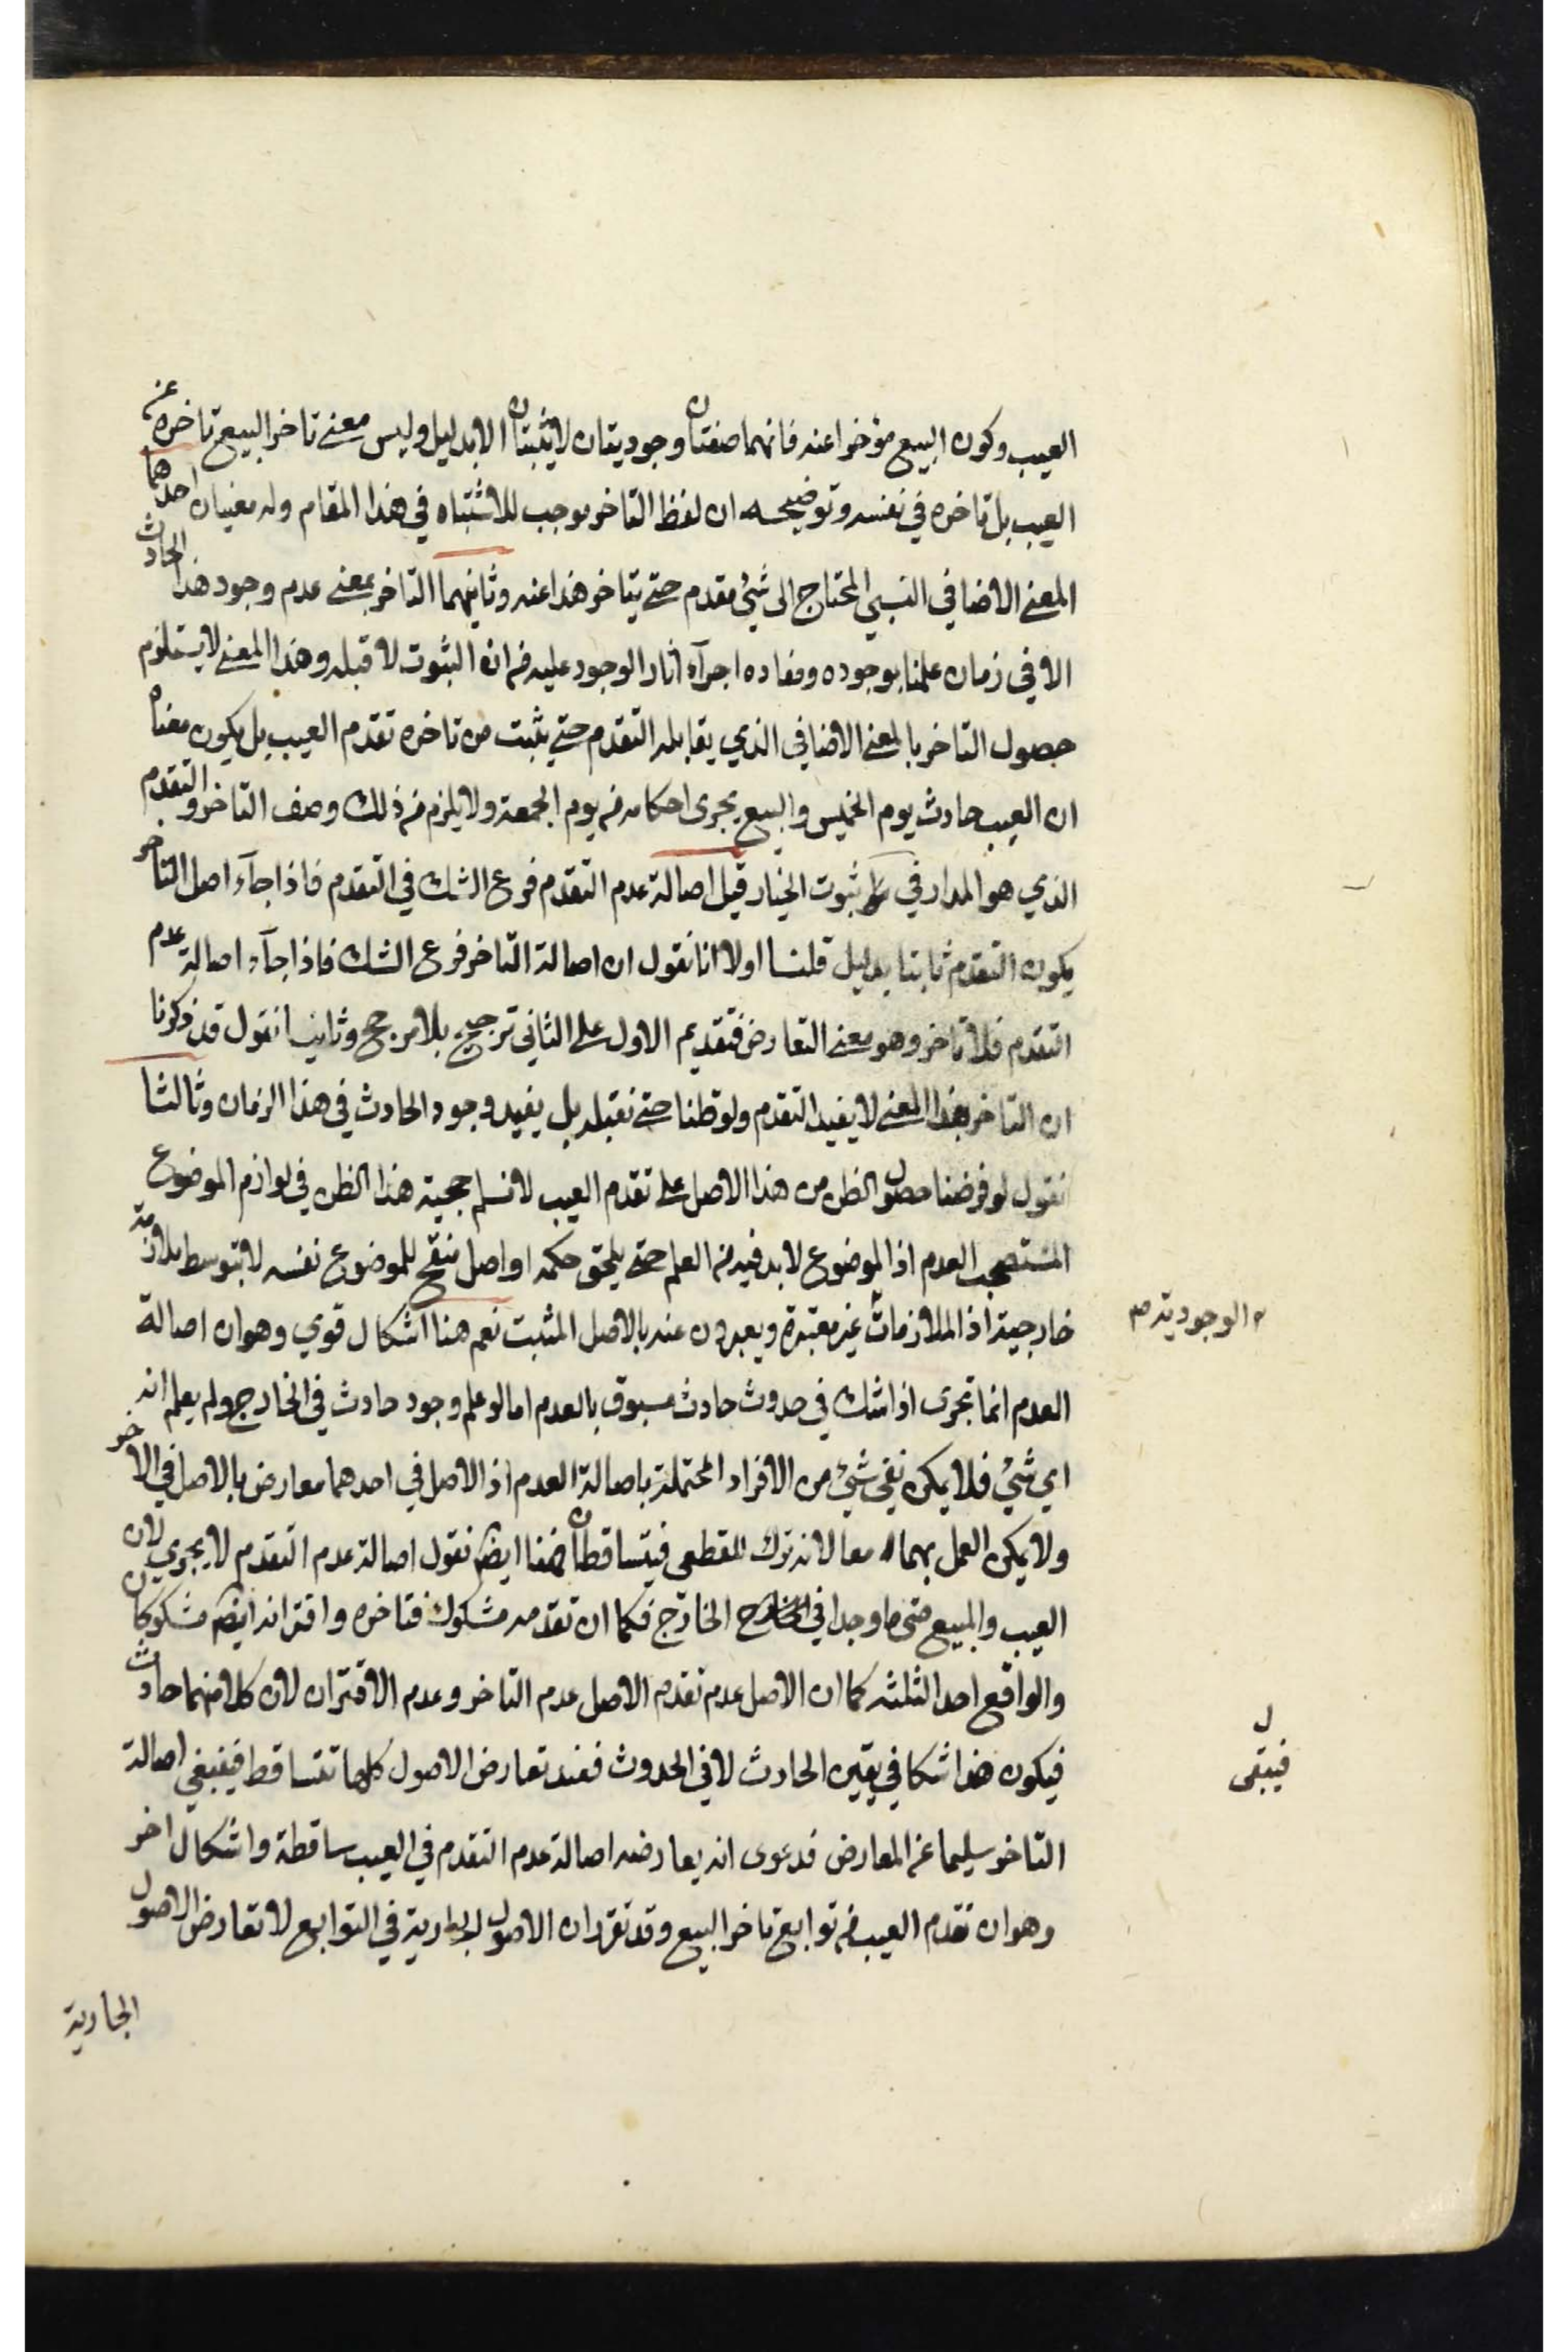 العيب وكون البيع مؤخرا عنه فانهما صفتان وجوديتان لا يثبتان الا بدليل وليس معنى تاخر البيع تاخره عن
العيب بل تاخره في نفسه وتوضيحه ان لفظ التاخر موجب للاشتباه في هذا المقام وله معنيان احدهما
المعنى الاضافي النسبي المحتاج الى شئ مقدم حتى يتاخر هذا عنه وثانيهما التاخر بمعنى عدم وجود هذا الحادث
الا في زمان علمنا بوجوده ومفاده اجرآء اثار الوجود عليه من ان الثبوت لا قبله وهذا المعنى لا يستلزم
حصول التاخر بالمعنى الاضافي الذي يقابله التقدم حتى يثبت من تاخره تقدم العيب بل يكون معناه
ان العيب حادث يوم الخميس والبيع يجرى احكامه من يوم الجمعة ولا يلزم من ذلك وصف التاخر والتقدم
الذي هو المدار في ثبوت الخيار قيل اصالة عدم التقدم فرع الشك في التقدم فاذا جآء اصل التاخر
يكون التقدم ثابتا بدليل قلنا اولا انا نقول ان اصالة التاخر فرع الشك فاذا جآء اصالة عدم
التقدم فلا تاخر وهو معنى التعارض فتقديم الاول على الثاني ترجيح بلا مرجح وثانيا نقول قد ذكرنا
ان التاخر بهذا المعنى لا يفيد التقدم ولو ظنا حتى نقبله بل يفيد وجود الحادث في هذا الزمان وثالثا
نقول لو فرضنا حصول الظن من هذا الاصل على تقدم العيب لا نسلم حجية هذا الظن في لوازم الموضوع
المستصحب العدم اذ الموضوع لابد فيه من العلم حتى يلحق حكمه او اصل منقح للموضوع نفسه لا بتوسط ملازمة
خارجية اذ الملازمات غير معتبرة ويعبرون عنه بالاصل المثبت نعم هنا اشكال قوي وهو ان اصالة
الوجودية صح
العدم انما تجرى اذا شك في حدوث حادث مسبوق بالعدم اما لو علم وجود حادث في الخارج ولم يعلم انه
اي شئ فلا يمكن نفى شئ من الافراد المحتملة باصالة العدم اذ الاصل في احدهما معارض بالاصل في الاخر
ولا يمكن العمل بهما معا لانه ترك للقطعى فيتساقطان فهنا ايضا نقول اصالة عدم التقدم لا يجري لان
العيب والمبيع متى ما وجدا في الخارج فكما ان تقدمه مشكوك فتاخره واقترانه ايضا مشكوكان
والواقع احد الثلثه كما ان الاصل عدم تقدم الاصل عدم التاخر وعدم الاقتران لان كلا منهما حادث
فيكون هذا شكا في تعيين الحادث لا في الحدوث فعند تعارض الاصول كلها تتساقط فيبقي اصالة
ل
فيبقى
التاخر سليما عن المعارض فدعوى انه يعارضه اصالة عدم التقدم في العيب ساقطة واشكال اخر
وهو ان تقدم العيب من توابع تاخر البيع وقد تقرر ان الاصول الجارية في التوابع لا تعارض الاصول
الجارية